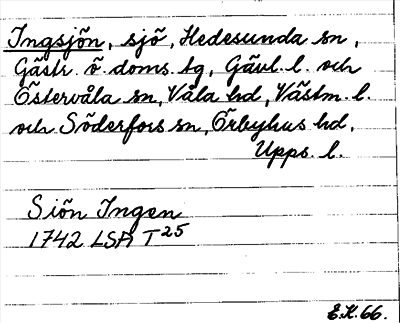 Ingsjön, sjö, Hedesunda sn,
Gästr. ö. doms. tg, Gävl. l. och
Östervåla sn, Våla hd, Västm. l.
och Söderfors sn, Örbyhus hd,
Upps. l.
Siön Ingen
1742 LSA T 25
E.K. 66.